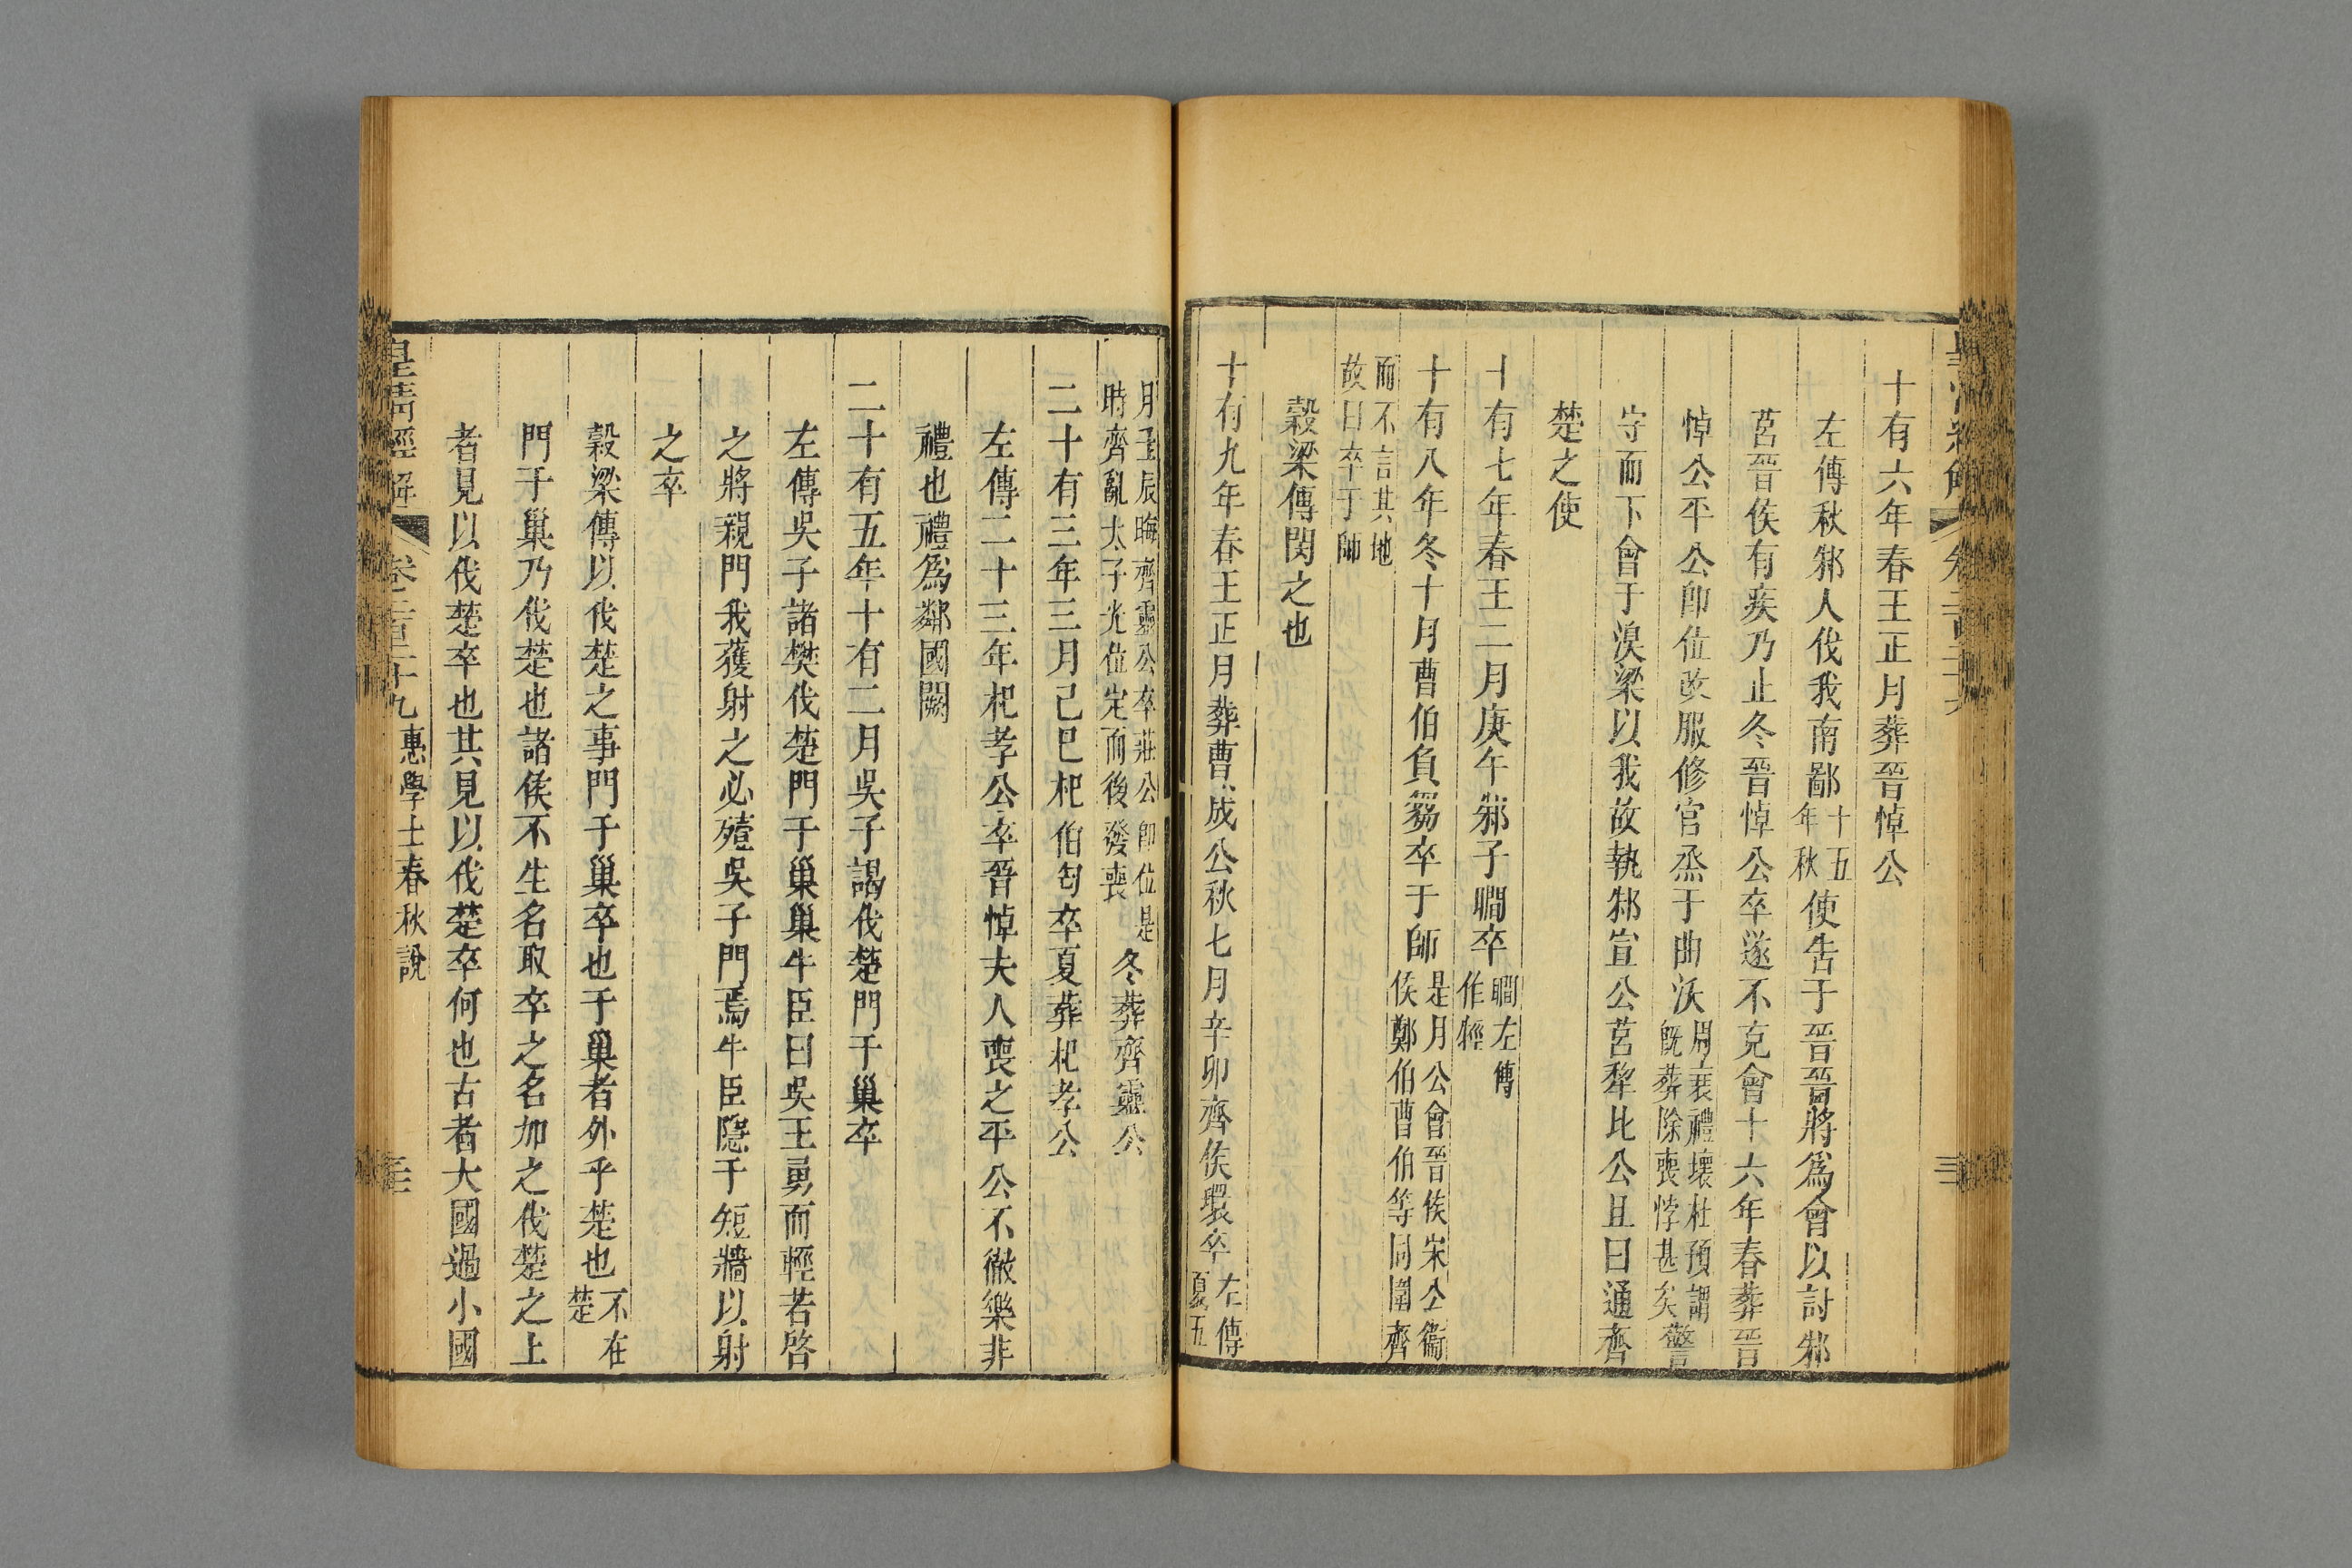 十有六年春王正月葬晉悼公
左傳秋邾人伐我南鄙十五年秋使告于晉晉將爲會以討邾
莒晉侯有疾乃止冬晉悼公卒遂不克會十六年春葬晉
悼公平公卽位改服修官烝于曲沃周衰禮壞杜預謂旣葬除喪悖甚矣警
守而下會于溴梁以我故執邾宣公莒犂比公且曰通齊
楚之使
十有七年春王二月庚午邾子瞷卒瞷左傳作牼
十有八年冬十月曹伯負芻卒于師是月公會晉侯宋公衞侯鄭伯曹伯等同圍齊
而不言其地故曰卒于師
穀梁傳閔之也
十有九年春王正月葬曹成公秋七月辛卯齊侯環卒左傳夏五
月壬辰晦齊靈公卒莊公卽位是時齊亂太子光位定而後發喪冬葬齊靈公
二十有三年三月己巳杞伯匄卒夏葬杞孝公
左傳二十三年杞孝公卒晉悼夫人喪之平公不徹樂非
禮也禮爲鄰國闕
二十有五年十有二月吳子謁伐楚門于巢卒
左傳吳子諸樊伐楚門于巢巢牛臣曰吳王勇而輕若啓
之將親門我獲射之必殪吳子門焉牛臣隱于短牆以射
之卒
穀梁傳以伐楚之事門于巢卒也于巢者外乎楚也不在楚
門于巢乃伐楚也諸侯不生名取卒之名加之伐楚之上
者見以伐楚卒也其見以伐楚卒何也古者大國過小國
皇清經解 卷二百二十九 惠學士春秋說